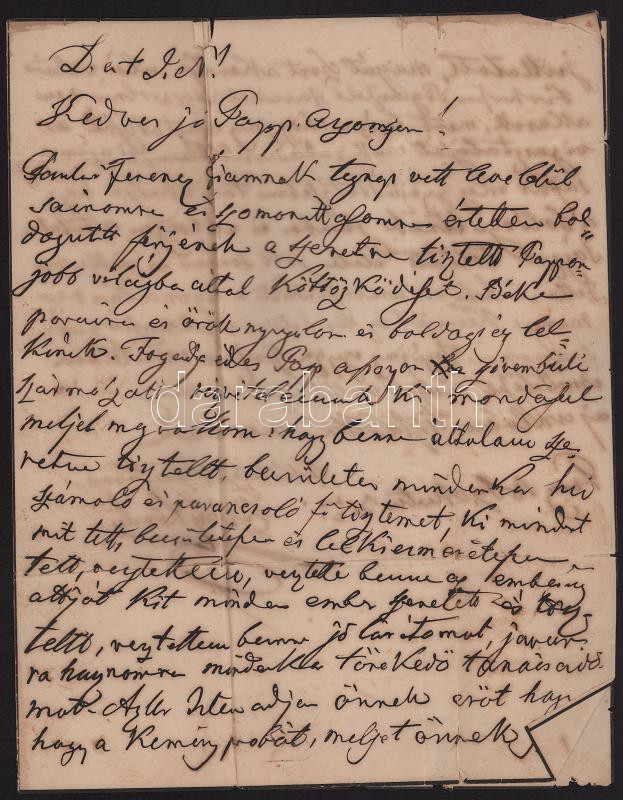 D. a t J. K.!
Kedves jó Papp. asszonyom!
Ferencz fiamnak tegnap vett leveléből
sainomra és szomorittásomra értettem bol=
dogult férjének a szeretve tiztellt Pappon=
jobb világba által költözködését. Béke
poraira és örök nyugalom és boldogság lel=
kinek. Fogadja édes Pap aszszon szivemböli
ki mondásul
meljel megvallom: hogy benne általam sze=
retve tiztellt, becsületes mindenkor hiv
számoló és parancsoló fő tisztemet, ki mindent
mit tett, becsületesen és lelkiesméretesen
tett, vesztettem, veszté benne az emberiség
attyát kit minden ember szeretett és tisz=
tellt, vesztettem benne jó barátomat, javam=
ra hasznomra mindenkor törekedő tanácsadó=
mat. Az Ur Isten adjon önnek eröt hogy
hogy a kemény probát, meljet önnek
darabanth